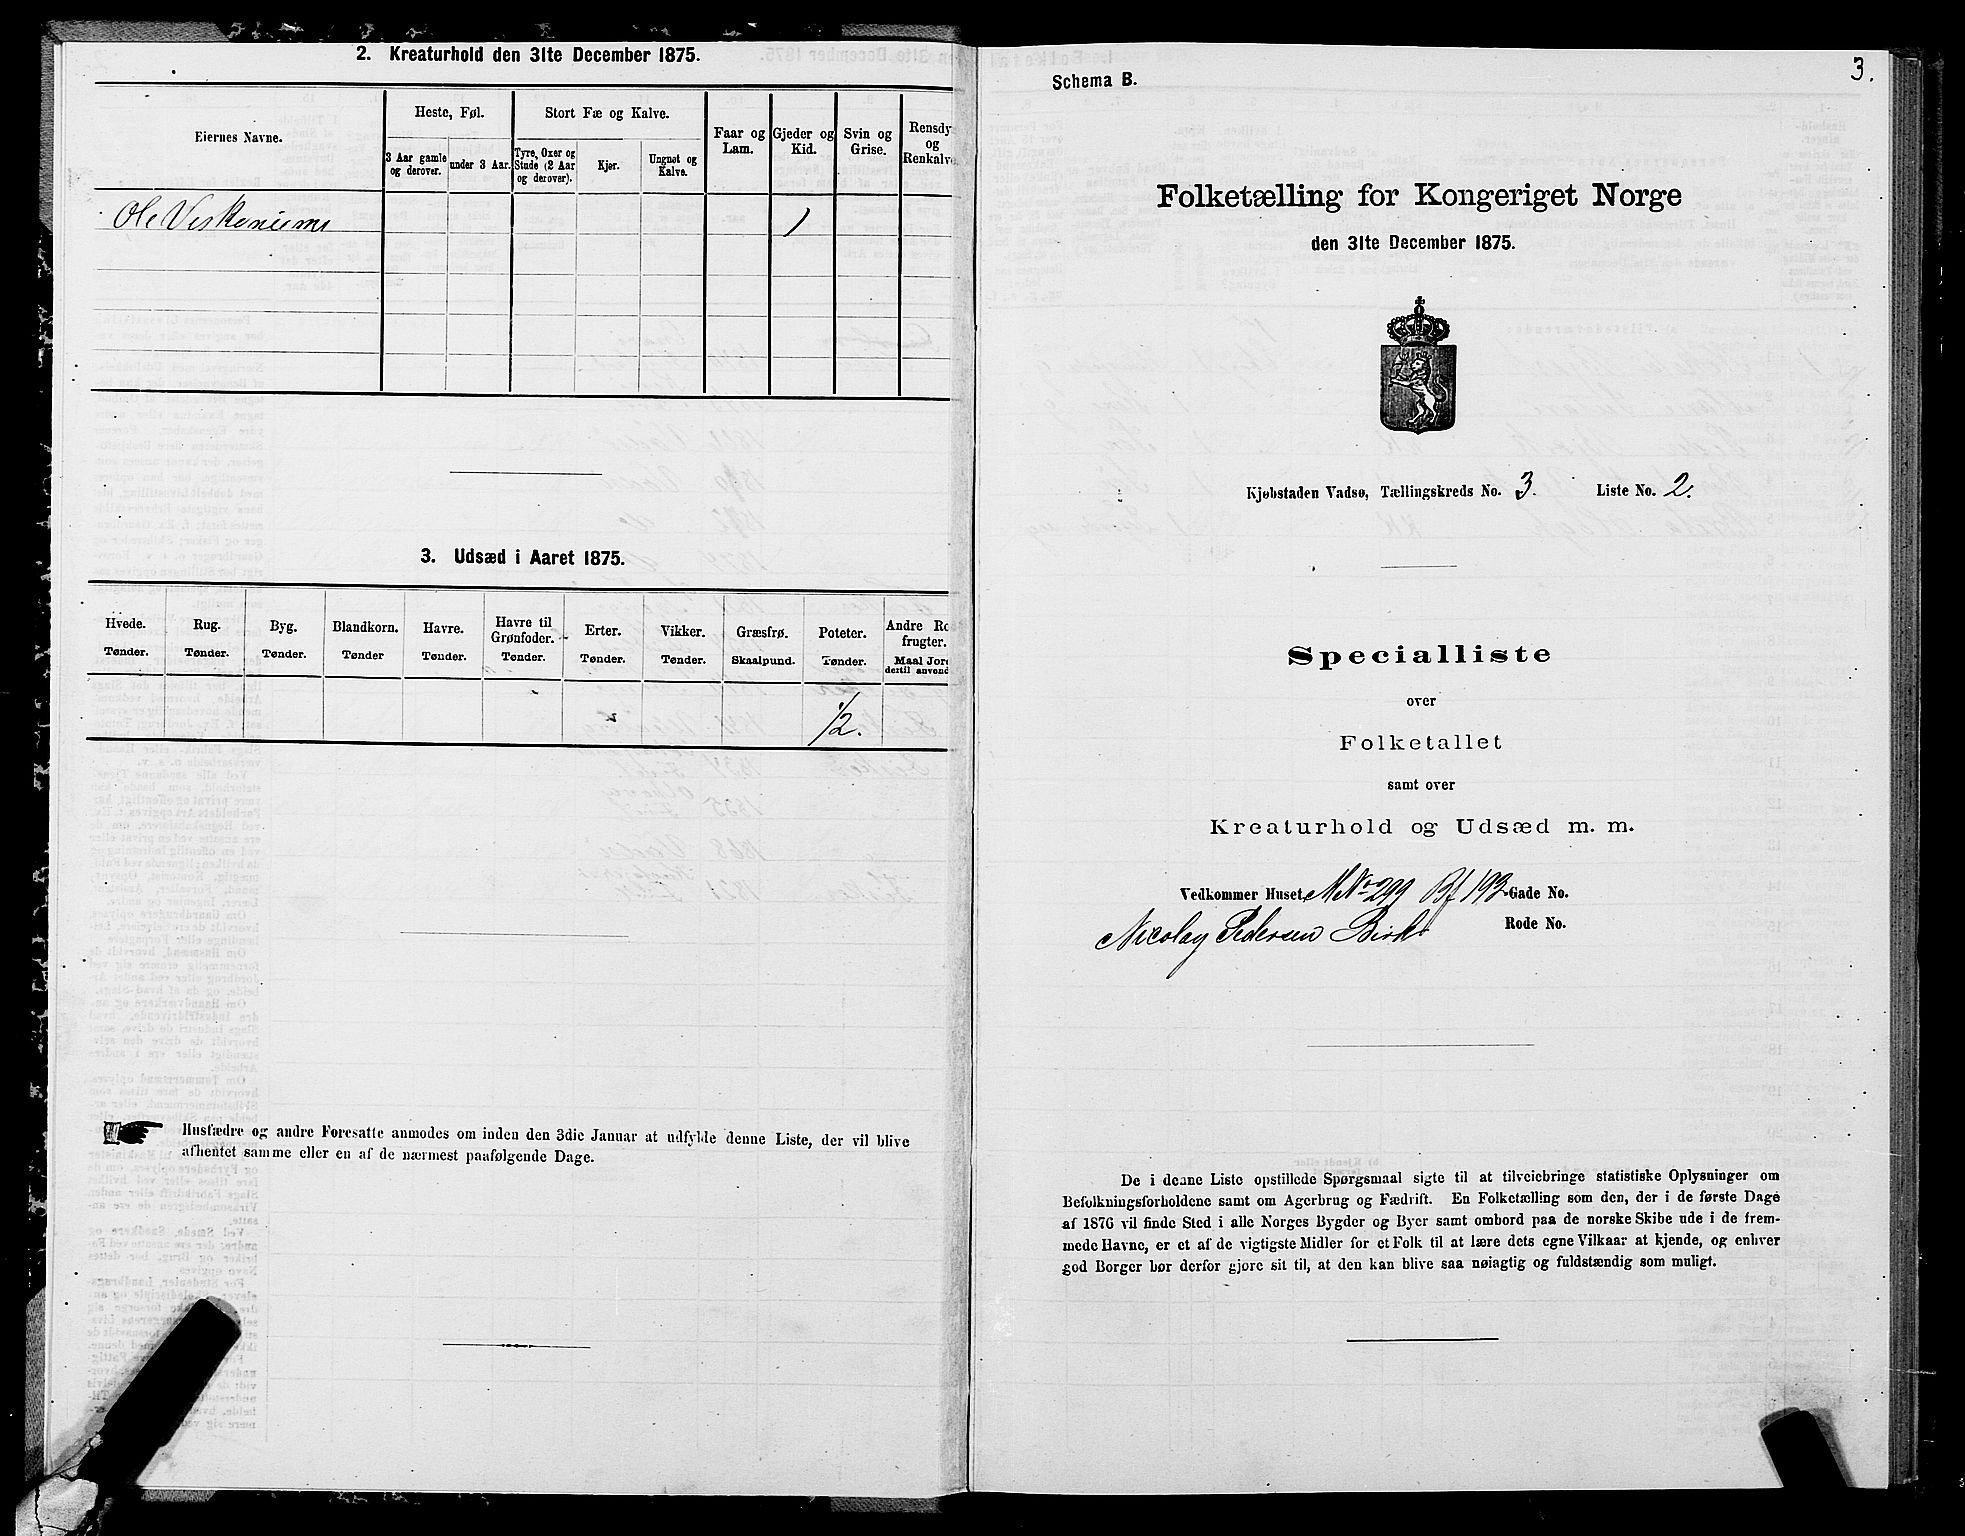 2. Kreaturhold den 31te December 1875.
Eiernes Navne.
Heste, Føl.
Stort Fæ og Kalve.
Faar og
Lam.
Gjeder og
Kid.
Svin og
Grise.
Rensdy
og
Renkalve
3 Aar gamle
og derover.
under 3 Aar.
Tyre, Oxer og
Stude (2 Aar
og derover).
Kjør.
Ungnøt og
Kalve.
Ole 1
3. Udsæd i Aaret 1875.
Hvede.
Tønder.
Rug.
Tønder.
Byg.
Tønder.
Blandkorn.
Tønder
Havre.
Tønder.
Havre til
Grønfoder.
Tønder.
Erter.
Tønder.
Vikker.
Tønder.
Græsfrø.
Skaalpund.
Poteter.
Tønder.
Andre Ro
frugter.
Maal Jord
dertil anvend
1/2.
Husfædre og andre Foresatte anmodes om inden den 3die Januar at udfylde denne Liste, der vil blive
afhentet samme eller en af de nærmest paafølgende Dage.
3.
Schema B.
Folketælling for Kongeriget Norge
den 31te December 1875.
Kjøbstaden Vadsø, Tællingskreds No. 3. Liste No. 2.
Specialliste
over
Folketallet
samt over
Kreaturhold og Udsæd m. m.
Vedkommer Huset, MNo 299 Bf 193 -Gade No.
Nicolay Pedersen Rode No.
De i denne Liste opstillede Spørgsmaal sigte til at tilveiebringe statistiske Oplysninger om
Befolkningsforholdene samt om Agerbrug og Fædrift. En Folketælling som den, der i de første Dage
af 1876 vil finde Sted i alle Norges Bygder og Byer samt ombord paa de norske Skibe ude i de frem-
mede Havne, er et af de vigtigste Midler for et Folk til at lære dets egne Vilkaar at kjende, og enhver
god Borger bør derfor gjøre sit til, at den kan blive saa nøiagtig og fuldstændig som muligt.